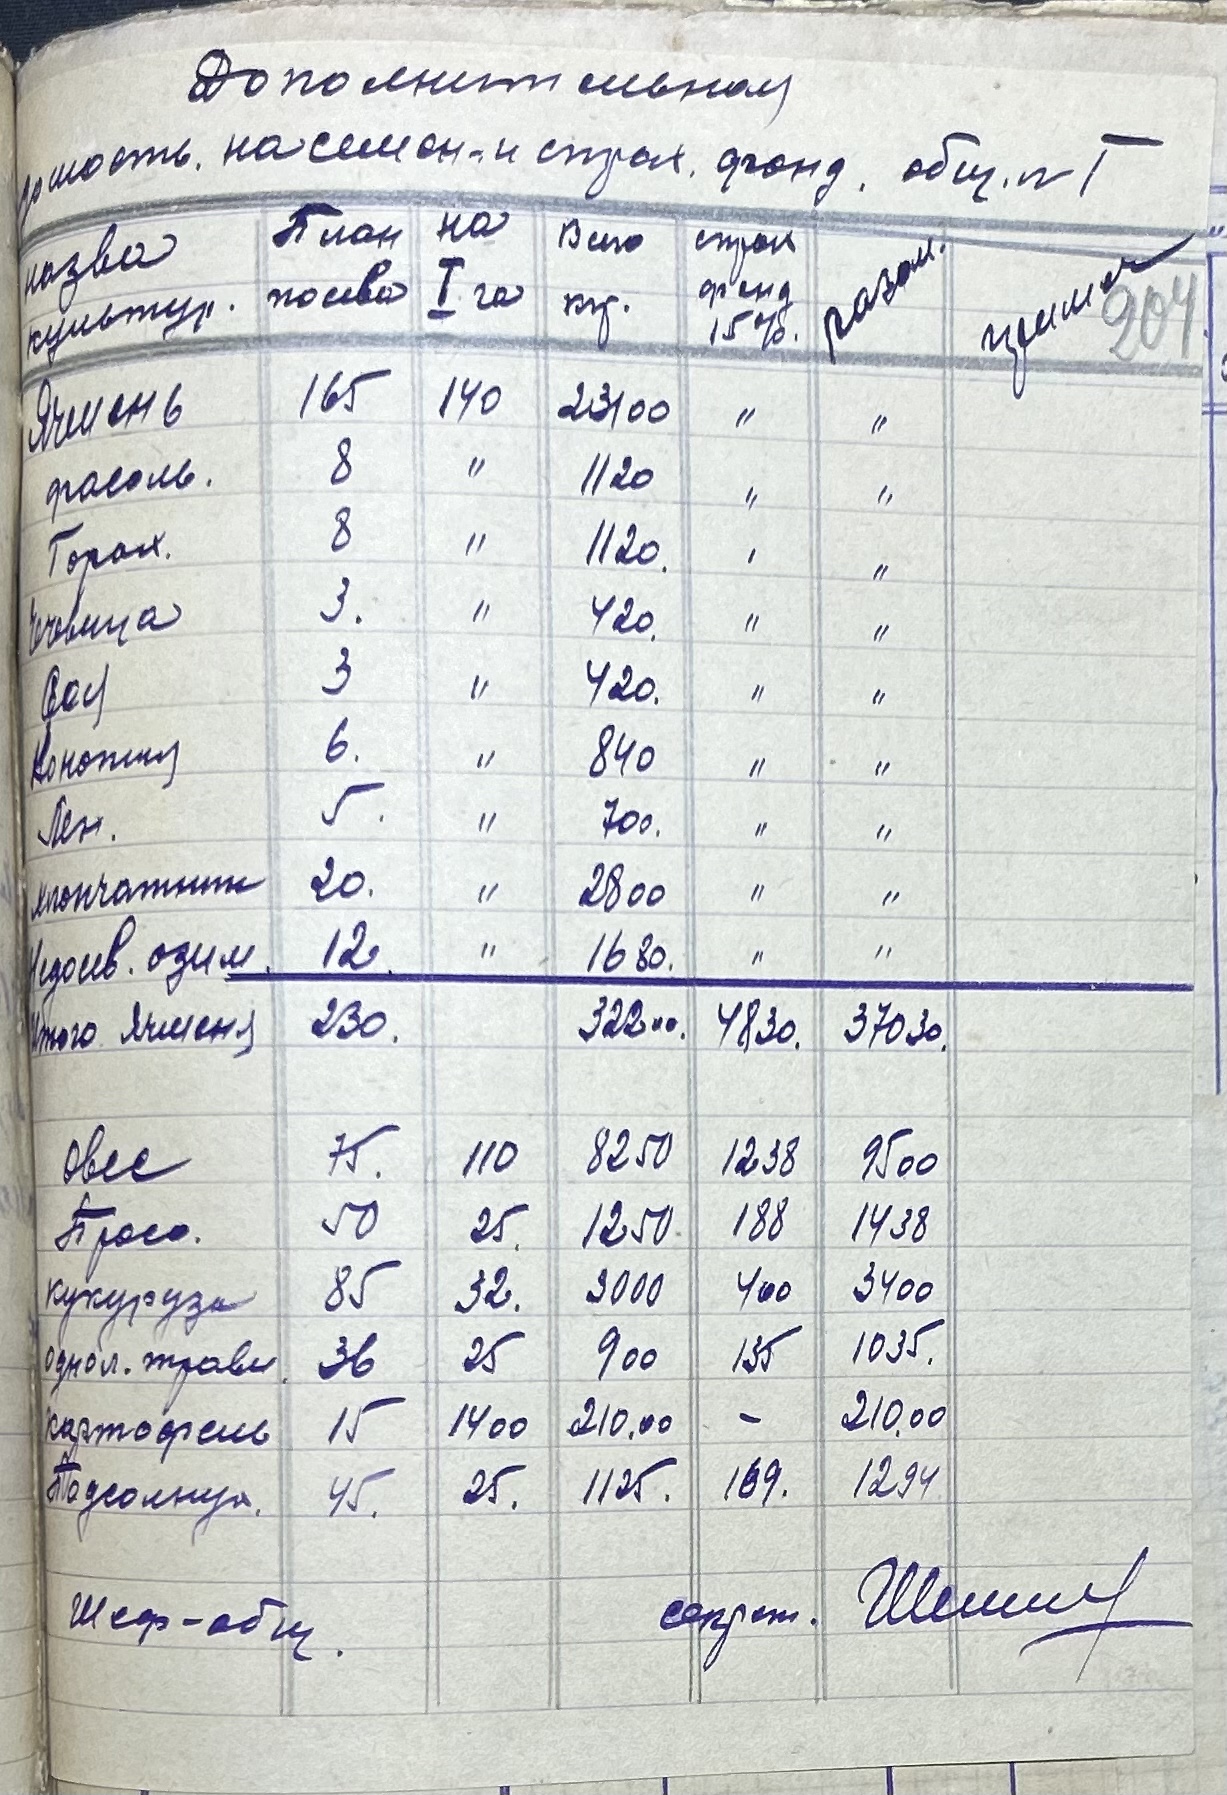 Дополнительная
насемен-и страх. фонд. общ. n I
назва План на Всего страх разом.
культур. посева I га кгр. фонд
15%. 204
Ячмень 165 140 23100 " "
фасоль. 8 " 1120 " "
Горох. 8 " 1120. ' "
Чечевица 3. " 420. " "
Соя 3 " 420. " "
Конопля 6. " 840 " "
Лен. 5. " 700. " "
хлопчатник 20. " 2800 " "
Недосев. озим. 12. " 1680. " "
Итого Ячменя 230. 32200. 4830. 37030.
Овес 75. 110 8250 1238 9500
Просо. 50 25. 1250. 188 1438
кукуруза 85 32. 3000 400 3400
однол. травы. 36 25 900 135 1035.
картофель 15 1400 210.00 - 210.00
Подсолнух. 45. 25. 1125. 169. 1294
Шеф-общ. секрет.